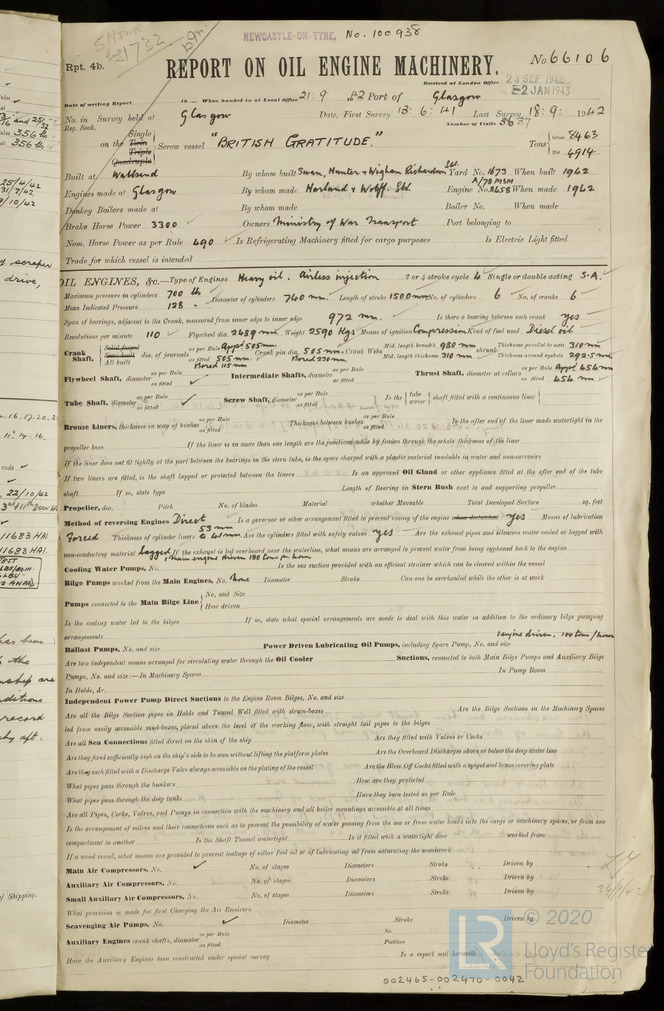 NEWCASTLE-ON-TYNE. No. 100938
Rpt. 4b.
REPORT ON OIL ENGINE MACHINERY.
No 66106
Received at London Office 23 SEP 1942
2 JAN 1943
Date of writing Report 19 When handed in at Local Office 21. 9. 1942 Port of Glasgow
No. in Reg. Book. Survey held at Glasgow Date, First Survey 13. 6. 41 Last Survey 18. 9. 1942
Number of Visits
on the Single Twin Triple Quadruple Screw vessel "BRITISH GRATITUDE." Tons Gross 8463 Net 4914
Built at Wallsend By whom built Swan, Hunter & Wigham Richardson Ltd. Yard No. 1673 When built 1942
Engines made at Glasgow By whom made Harland & Wolff. Ltd. Engine No. 8658 When made 1942
Donkey Boilers made at By whom made Boiler No. When made
Brake Horse Power 3300 Owners Ministry of War Transport Port belonging to
Nom. Horse Power as per Rule 490 Is Refrigerating Machinery fitted for cargo purposes Is Electric Light fitted
Trade for which vessel is intended
OIL ENGINES, &c.—Type of Engines Heavy oil. Airless injection 2 or 4 stroke cycle 4 Single or double acting S.A.
Maximum pressure in cylinders 700 lb Diameter of cylinders 740 mm. Length of stroke 1500 mm No. of cylinders 6 No. of cranks 6
Mean Indicated Pressure 128
Span of bearings, adjacent to the Crank, measured from inner edge to inner edge 972 mm. Is there a bearing between each crank yes
Revolutions per minute 110 Flywheel dia. 2689 mm Weight 2590 Kgs Means of ignition Compression Kind of fuel used Diesel oil
Crank Shaft, Solid forged Semi built All built dia. of journals as per Rule Appd 505 mm. as fitted 505 mm. Bored 115 mm Crank pin dia. 505 mm. Bored 230 mm. Crank Webs Mid. length breadth 980 mm Mid. length thickness 310 mm shrunk Thickness parallel to axis 310 mm Thickness around eyehole 292.5 mm
Flywheel Shaft, diameter as per Rule as fitted Intermediate Shafts, diameter as per Rule as fitted Thrust Shaft, diameter at collars as per Rule Appd 454 mm as fitted 454 mm
Tube Shaft, diameter as per Rule as fitted Screw Shaft, diameter as per Rule as fitted Is the tube screw shaft fitted with a continuous liner
Bronze Liners, thickness in way of bushes as per Rule as fitted Thickness between bushes as per Rule as fitted Is the after end of the liner made watertight in the
propeller boss If the liner is in more than one length are the junctions made by fusion through the whole thickness of the liner
If the liner does not fit tightly at the part between the bearings in the stern tube, is the space charged with a plastic material insoluble in water and non-corrosive
If two liners are fitted, is the shaft lapped or protected between the liners Is an approved Oil Gland or other appliance fitted at the after end of the tube
shaft If so, state type Length of Bearing in Stern Bush next to and supporting propeller
Propeller, dia. Pitch No. of blades Material whether Moveable Total Developed Surface sq. feet
Method of reversing Engines Direct Is a governor or other arrangement fitted to prevent racing of the engine when declutched yes Means of lubrication
Forced Thickness of cylinder liners 53 mm to 41 mm Are the cylinders fitted with safety valves yes Are the exhaust pipes and silencers water cooled or lagged with
non-conducting material lagged If the exhaust is led overboard near the waterline, what means are arranged to prevent water from being syphoned back to the engine
Cooling Water Pumps, No. 1 main engine driven 180 tons p. hour Is the sea suction provided with an efficient strainer which can be cleared within the vessel
Bilge Pumps worked from the Main Engines, No. None Diameter Stroke Can one be overhauled while the other is at work
Pumps connected to the Main Bilge Line No. and Size How driven
Is the cooling water led to the bilges If so, state what special arrangements are made to deal with this water in addition to the ordinary bilge pumping
arrangements
Ballast Pumps, No. and size Power Driven Lubricating Oil Pumps, including Spare Pump, No. and size 1 engine driven. 100 tons/hour
Are two independent means arranged for circulating water through the Oil Cooler Suctions, connected to both Main Bilge Pumps and Auxiliary Bilge
Pumps, No. and size:—In Machinery Spaces In Pump Room
In Holds, &c.
Independent Power Pump Direct Suctions to the Engine Room Bilges, No. and size
Are all the Bilge Suction pipes in Holds and Tunnel Well fitted with strum-boxes Are the Bilge Suctions in the Machinery Spaces
led from easily accessible mud-boxes, placed above the level of the working floor, with straight tail pipes to the bilges
Are all Sea Connections fitted direct on the skin of the ship Are they fitted with Valves or Cocks
Are they fixed sufficiently high on the ship's side to be seen without lifting the platform plates Are the Overboard Discharges above or below the deep water line
Are they each fitted with a Discharge Valve always accessible on the plating of the vessel Are the Blow Off Cocks fitted with a spigot and brass covering plate
What pipes pass through the bunkers How are they protected
What pipes pass through the deep tanks Have they been tested as per Rule
Are all Pipes, Cocks, Valves, and Pumps in connection with the machinery and all boiler mountings accessible at all times
Is the arrangement of valves and their connections such as to prevent the possibility of water passing from the sea or from water tanks into the cargo or machinery spaces, or from one
compartment to another Is the Shaft Tunnel watertight Is it fitted with a watertight door worked from
If a wood vessel, what means are provided to prevent leakage of either fuel oil or of lubricating oil from saturating the woodwork
Main Air Compressors, No. No. of stages Diameters Stroke Driven by
Auxiliary Air Compressors, No. No. of stages Diameters Stroke Driven by
Small Auxiliary Air Compressors, No. No. of stages Diameters Stroke Driven by
What provision is made for first Charging the Air Receivers
Scavenging Air Pumps, No. Diameter Stroke Driven by
Auxiliary Engines crank shafts, diameter as per Rule as fitted No. Position
Have the Auxiliary Engines been constructed under special survey Is a report sent herewith
LR © 2020
Lloyd's Register
Foundation
002465-002470-0042